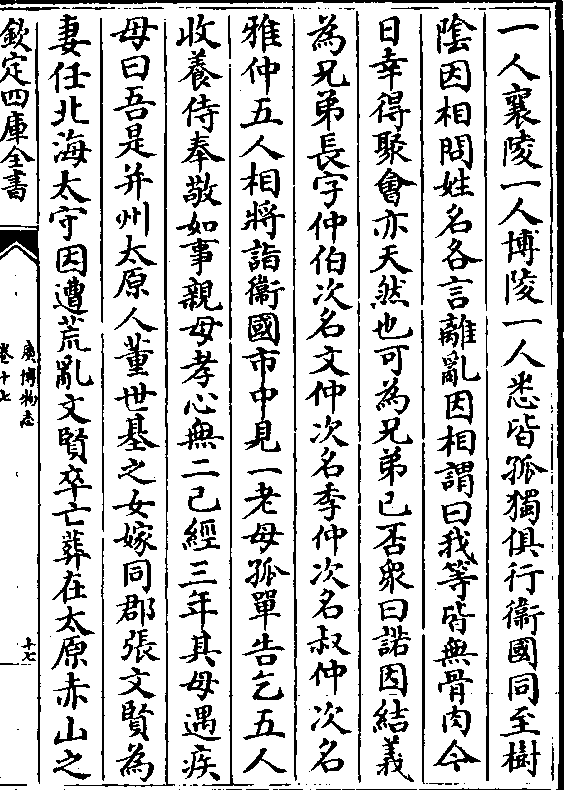 一人襄陵一人博陵一人悉皆孤獨俱行衛國同至樹
陰因相問姓名各言離亂因相謂曰我等皆無骨肉今
日幸得聚會亦天然也可為兄弟已否衆曰諾因結義
為兄弟長字仲伯次名文仲次名季仲次名叔仲次名
雅仲五人相將詣衛國市中見一老母孤單告乞五人
收養侍奉敬如事親母孝心無二已經三年其母遇疾
母曰吾是并州太原人董世基之女嫁同郡張文賢為
妻任北海太守因遭荒亂文賢卒亡葬在太原赤山之
欽定四庫全書
廣博物志
卷十七
十七